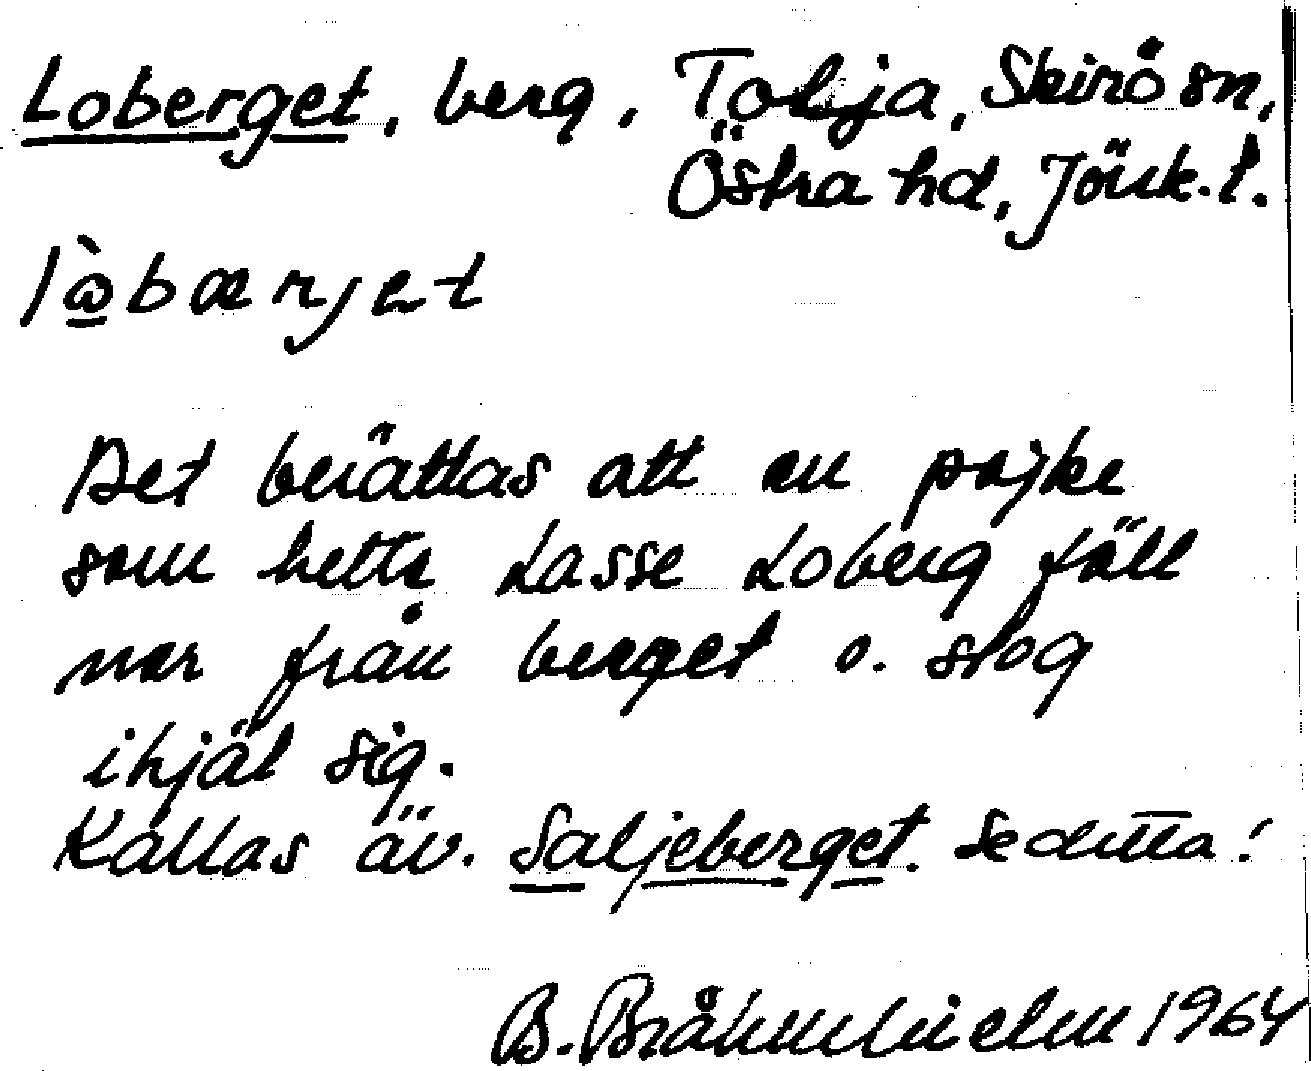 Loberget, berg, Tolja, Skirö sn,
Östra hd, Jönk. l.
lὼbærjet
Det berättas att en pojke
som hette Lasse Loberg föll
ner från berget o. slog
ihjäl sig.
Kallas äv. Saljeberget. Se detta!
B. 1964